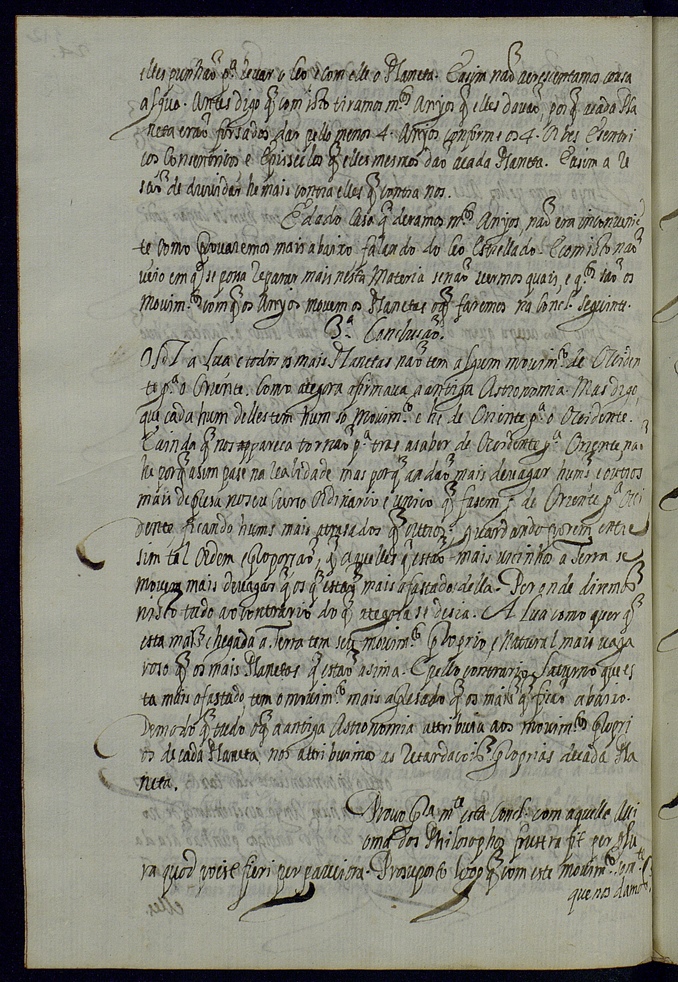 elles punhaõ p.ª levar o Ceo e com elle o Planeta. E asim naõ acresentamos cousa
algũa. Antes digo q̃ com isto tiramos m.tos Anjos q̃ elles davaõ, porq̃ acada Pla
neta eraõ forsados dar pello menos 4. Anjos conforme os 4. Orbes Exentri
cos Consentricos e Episiclos q̃ elles mesmos daõ acada Planeta. E asim a re
saõ de duvidar he mais contra elles q̃ contra nos.
E dado caso q̃ deramos m.tos Anjos, naõ era inconvenie
te como provaremos mais abaixo falando do Ceo Estrellado. E com isto naõ
vejo em q̃ se posa reparar mais nesta Materia senaõ vermos quais, e q.tos saõ os
Movim.tos com q̃ os Anjos movem os Planetas oq̃ faremos na Concl. seguinte.
3.ª Conclusaõ.
O Sol a Lua e todos os mais Planetas naõ tem algum movim.to de Occiden
te p.ª o Oriente. Como ategora afirmava a antiga Astronomia. Mas digo
que cada hum delles tem hum so Movim.to e he de Oriente p.ª o Occidente.
E ainda q̃ nos appareca tornaõ p.ª tras a saber de Occidente p.ª Oriente naõ
he porq̃ asim pase na realidade mas porq̃ andaõ mais devagar hums, e outros
mais depresa no seu curso Ordinario e unico q̃ fasem de Oriente p.ª Occi
dente ficando hums mais atrasados q̃ outros: guardando porem entre
sim tal Ordem e Proporsaõ, q̃ aquelles q̃ estaõ mais vecinhos a Terra se
movem mais devagar q̃ os q̃ estaõ mais afastados della. Por onde diremos
nisto tudo ao contrario do q̃ ategora se desia. A Lua como quer q̃
esta mais chegada a Terra tem seu movim.to proprio e Natural mais vaga
roso q̃ os mais Planetas q̃ estaõ asima. E pello contrario Saturno que es
ta mais afastado, tem o movim.to mais apresado q̃ os mais q̃ ficaõ abaixo.
Demodo q̃ tudo oq̃ a antiga Astronomia atribuia aos movim.tos Propri
os de cada Planeta nos attribuimos as Retardacoĩs proprias de cada Pla
neta.
Provo p.ª m.te esta Concl. com aquelle Axi
oma dos Philosophos frustra fit per plu
ra quod potest fieri per pauciora. Prosuposto logo q̃ com este movim.to
que nos damos
elles